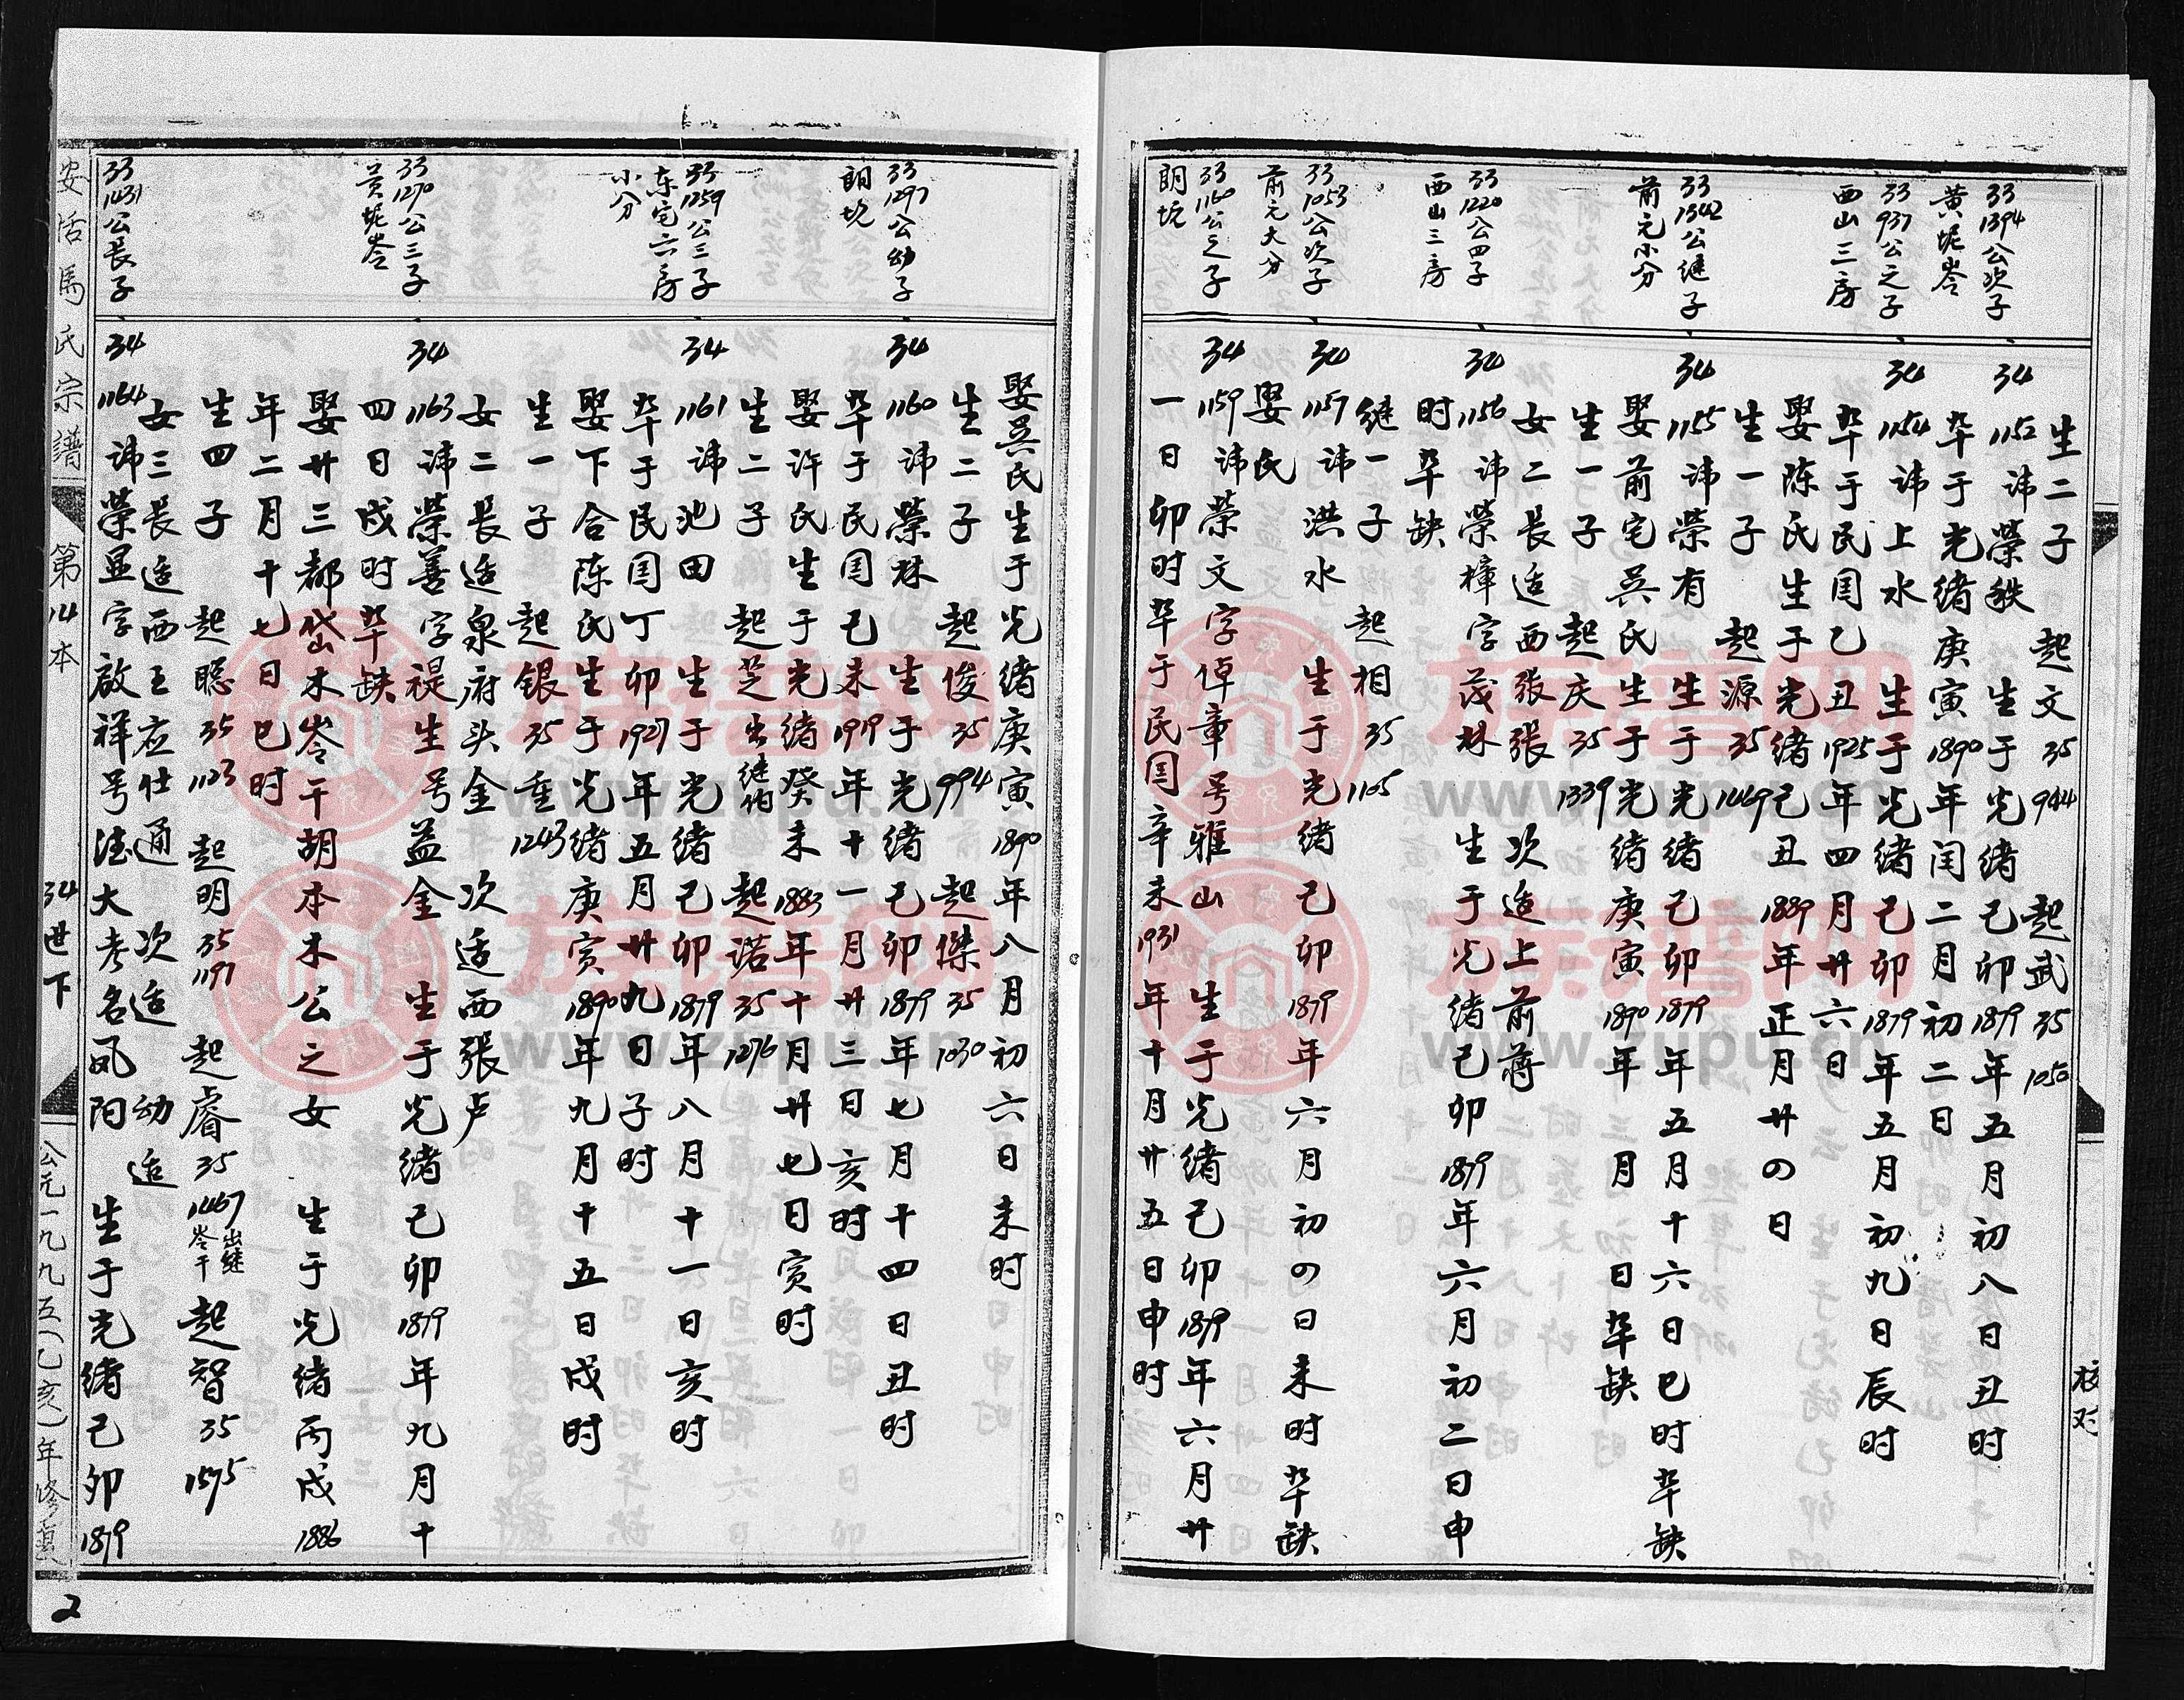 校对
生二子 起文 35 944 起武 35 1050
33 1394 公次子
黄坭岺
34 1152 讳榮 生于光绪己卯 1879 年五月初八日丑时
卒于光绪庚寅 1890 年闰二月初二日
33 937 公之子
西山三房
34 1154 讳上水 生于光绪己卯 1879 年五月初九日辰时
卒于民国乙丑 1925 年四月廿六日
娶陈氏生于光绪己丑 1889 年正月廿四日
生一子 起源 35 1469
33 1342 公继子
前元小分
34 1155 讳榮有 生于光绪己卯 1879 年五月十六日巳时卒缺
娶前宅吴氏生于光绪庚寅 1890 年 月 日卒缺
生一子 起庆 35 1339
女二長适西張張 次适上前蒋
33 1220 公四子
西山三房
34 1156 讳榮樟字茂林 生于光绪己卯 1879 年六月初二日申
时卒缺
继一子 起相 35 1105
33 1053 公次子
前元大分
34 1157 讳洪水 生于光绪己卯 1879 年六月初四日未时卒缺
娶 氏
33 1160 公之子
朗坑
34 1159 讳荣文字倬章号雅山 生于光绪己卯 1879 年六月廿
一日卯时卒于民国辛未 1931 年十月廿五日申时
娶吴氏生于光绪庚寅 1890 年八月初六日未时
生二子 起俊 35 994 起傑 35 1030
33 1297 公幼子
朗坑
34 1160 讳榮林 生于光绪己卯 1879 年七月十四日丑时
卒于民国己未 1919 年十一月廿三日亥时
娶许氏生于光绪癸未 1883 年十月廿七日寅时
生二子 起芝出继伯 起诺 35 1276
33 1259 公三子
东宅六房
小分
34 1161 讳池田 生于光绪己卯 1879 年八月十一日亥时
卒于民国丁卯 1927 年五月廿九日子时
娶下合陈氏生于光绪庚寅 1890 年九月十五日戌时
生一子 起银 35 重 1243
女二長适泉府头金 次适西張卢
33 1270 公三子
黄坭岺
34 1163 讳榮善字禔生号益金 生于光绪己卯 1879 年九月十
四日戌时卒缺
娶廿三都岱木岺干胡本木公之女 生于光绪丙戌 1886
年二月十七日巳时
生四子 起聪 35 1123 起明 35 1197 起睿 35 1467 出继岺干 起智 35 1575
女三長适西王应仕通 次适 幼适
33 1431 公長子
34 1164 讳榮显字啟祥号法大考名凤阳 生于光绪己卯 1879
安恬馬氏宗譜 第14本 34世下 公元一九九五(乙亥)年修
2